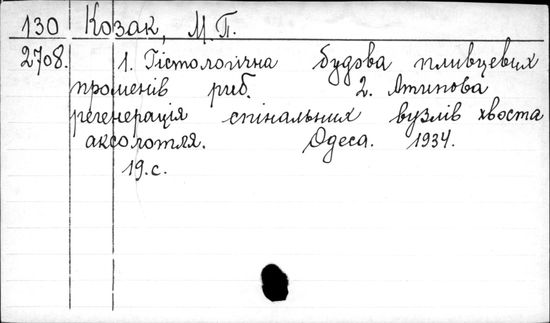 130 Козак, М.П.
2708. 1. Гістологічна будова пливцевих
променів риб. 2. Атипова
регенерація спінальних вузлів хвоста
аксолотля. Одеса. 1934.
19.с.